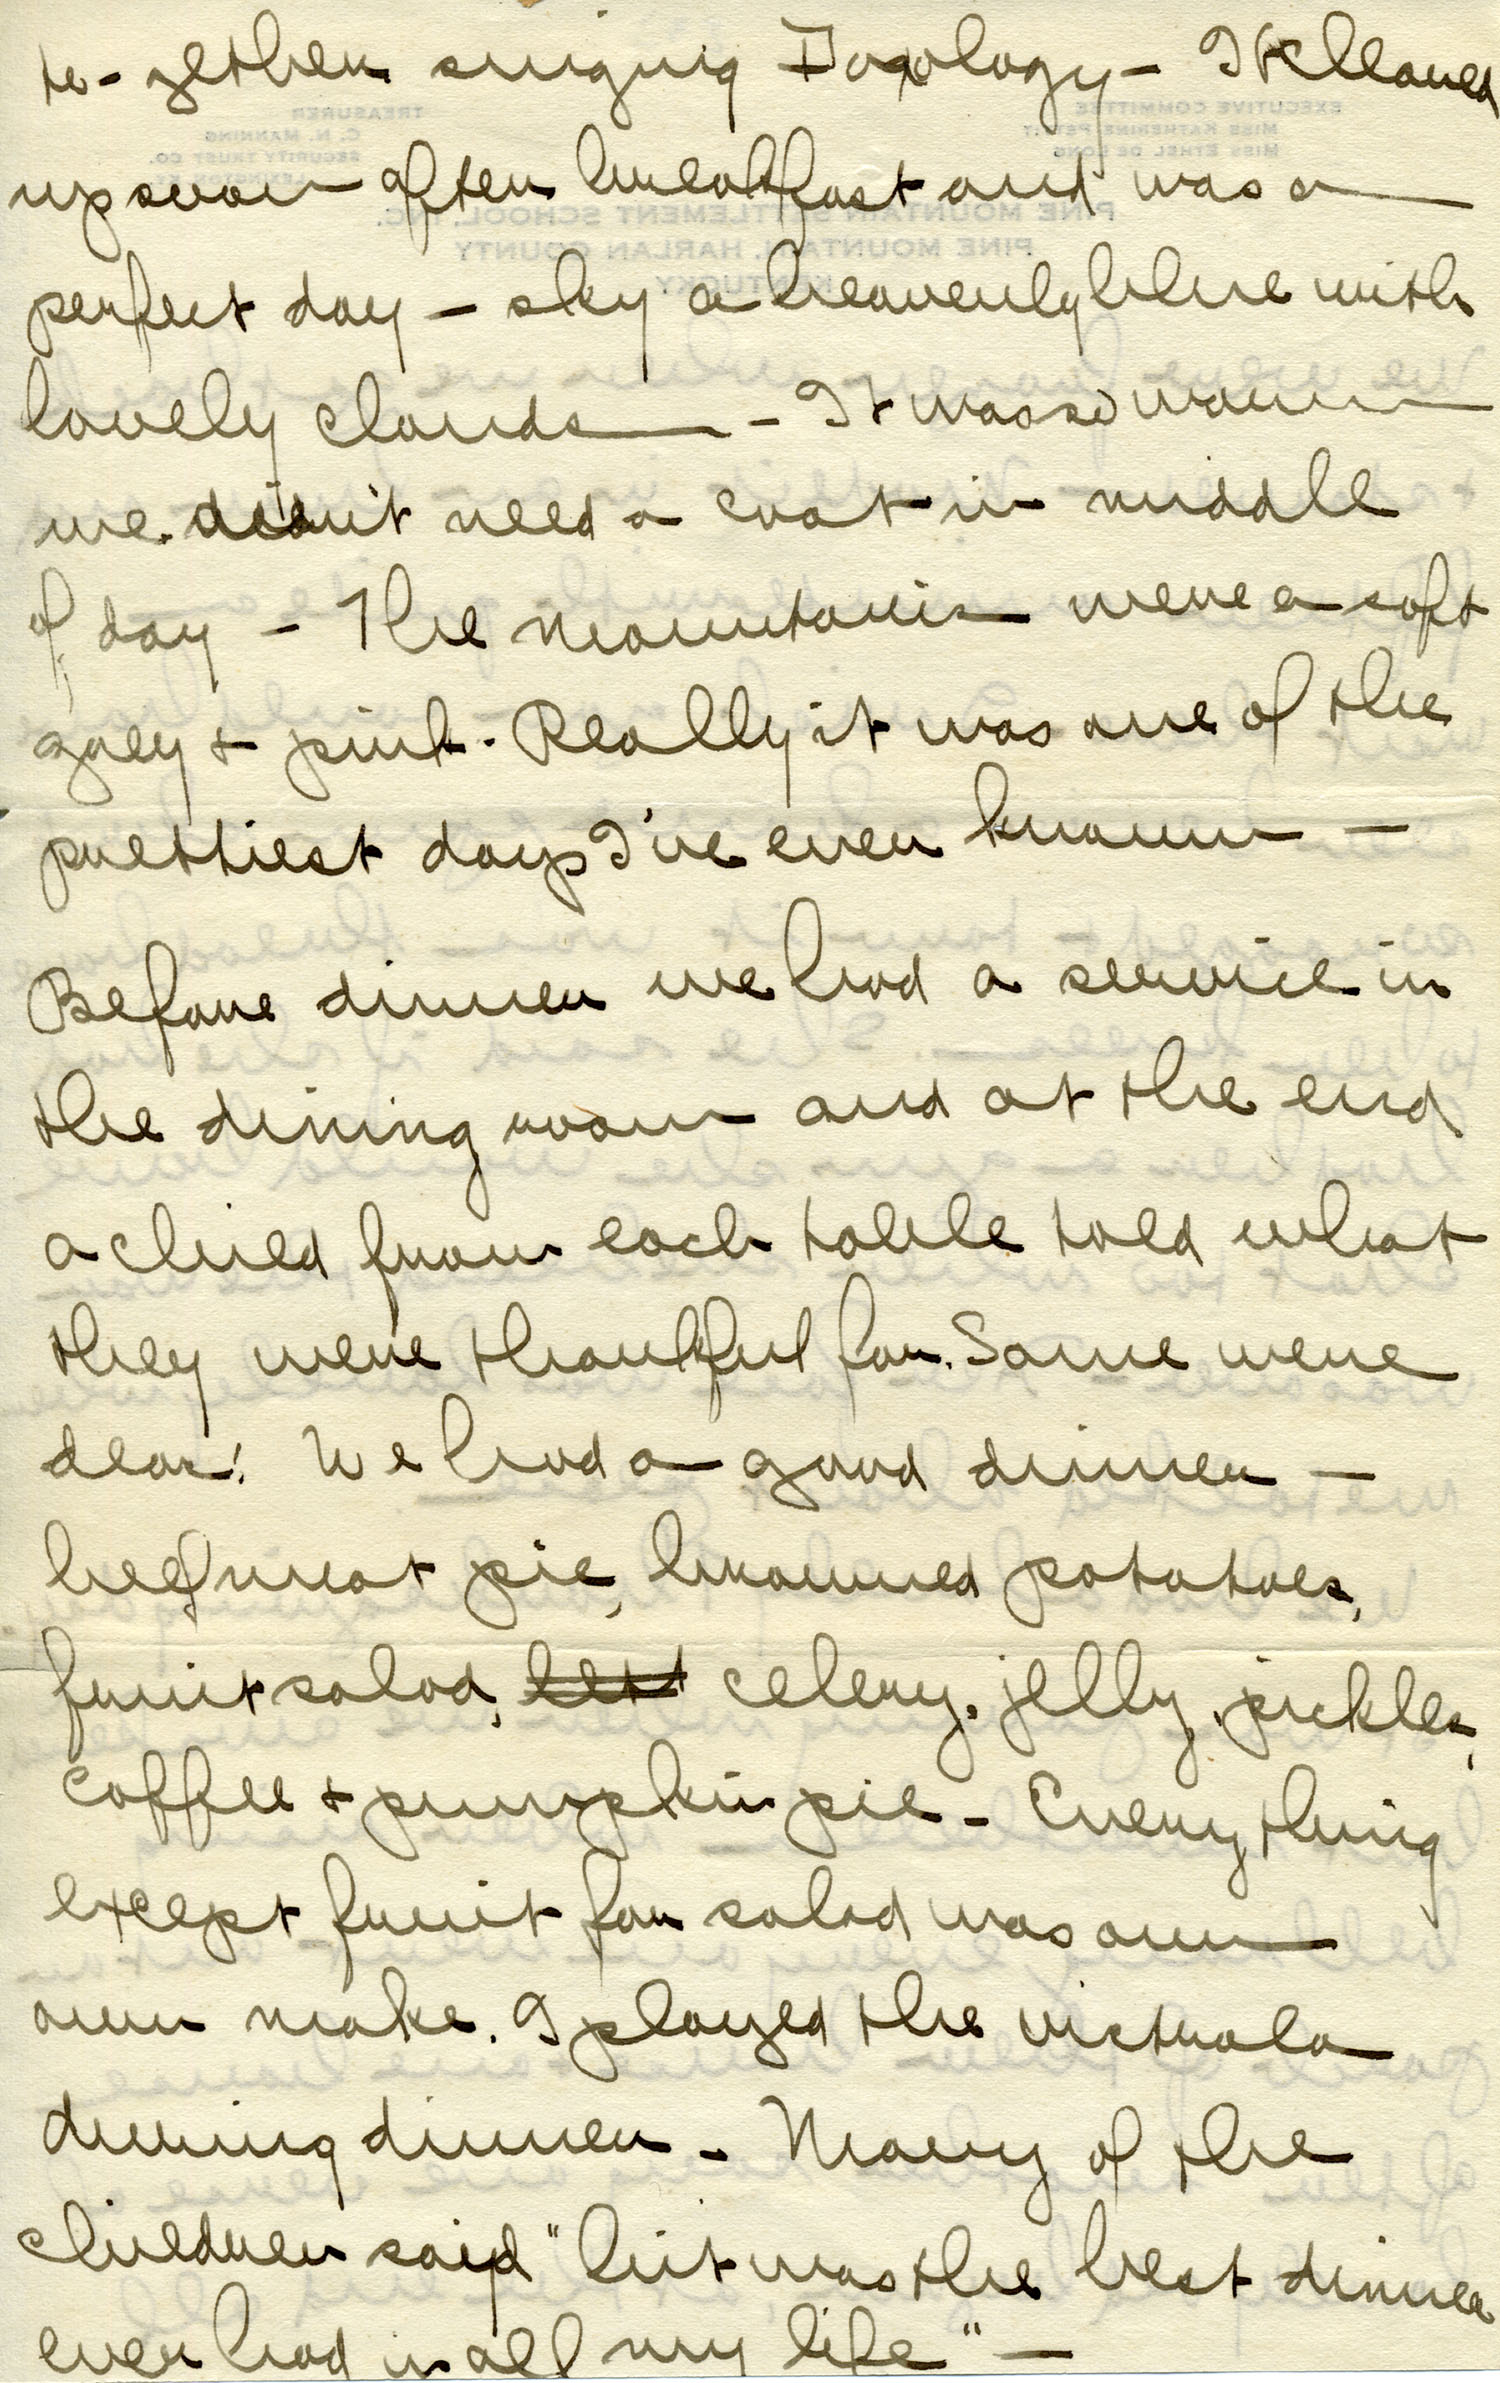 to-gether singing Doxology - It cleared
up soon after breakfast and was a
perfect day - sky a heavenly blue with
lovely clouds - It was so warm
we didn't need a coat in middle
of day - The mountains were a soft
grey + pink. Really it was one of the
prettiest days I've ever known -
Before dinner we had a service in
the dining room and at the end
a child from each table told what
they were thankful for. Some were
dear! We had a good dinner -
beef meat pie, browned potatoes,
fruit salad, celery, jelly, pickles,
coffee + pumpkin pie - Every thing
except fruit for salad was our
own make. I played the victrola
during dinner - Many of the
children said "hit was the best dinner
ever had in all my life" -
EXECUTIVE COMMITTEE
MISS KATHERINE PETTIT
MISS ETHEL DE LONG
TREASURER
C. N. MANNING
SECURITY TRUST CO.
LEXINGTON KY.
PINE MOUNTAIN SETTLEMENT SCHOOL, INC.
PINE MOUNTAIN, HARLAN COUNTY
KENTUCKY